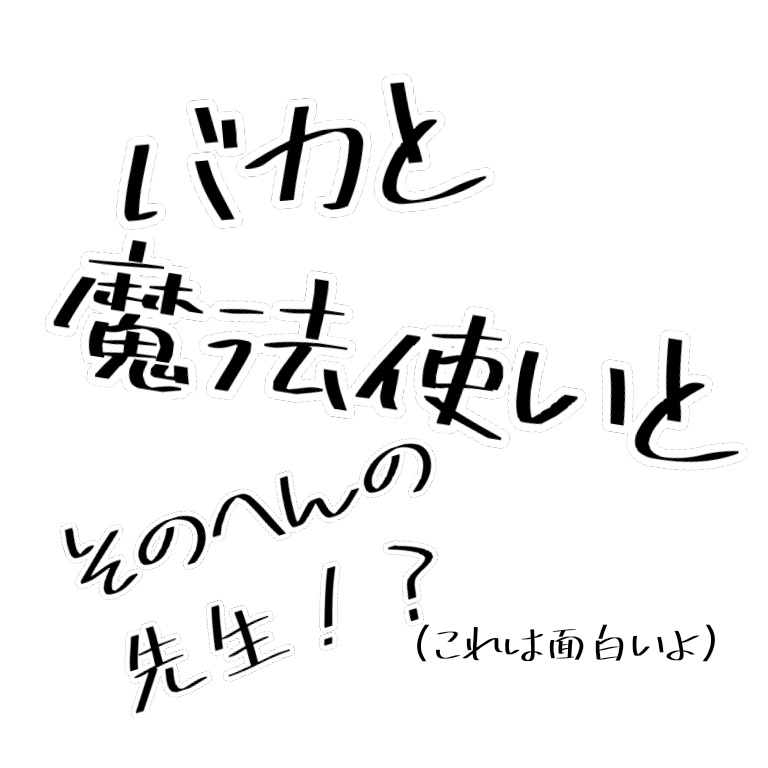 バカと
魔法使いと
そのへんの
先生！？
（これは面白いよ）